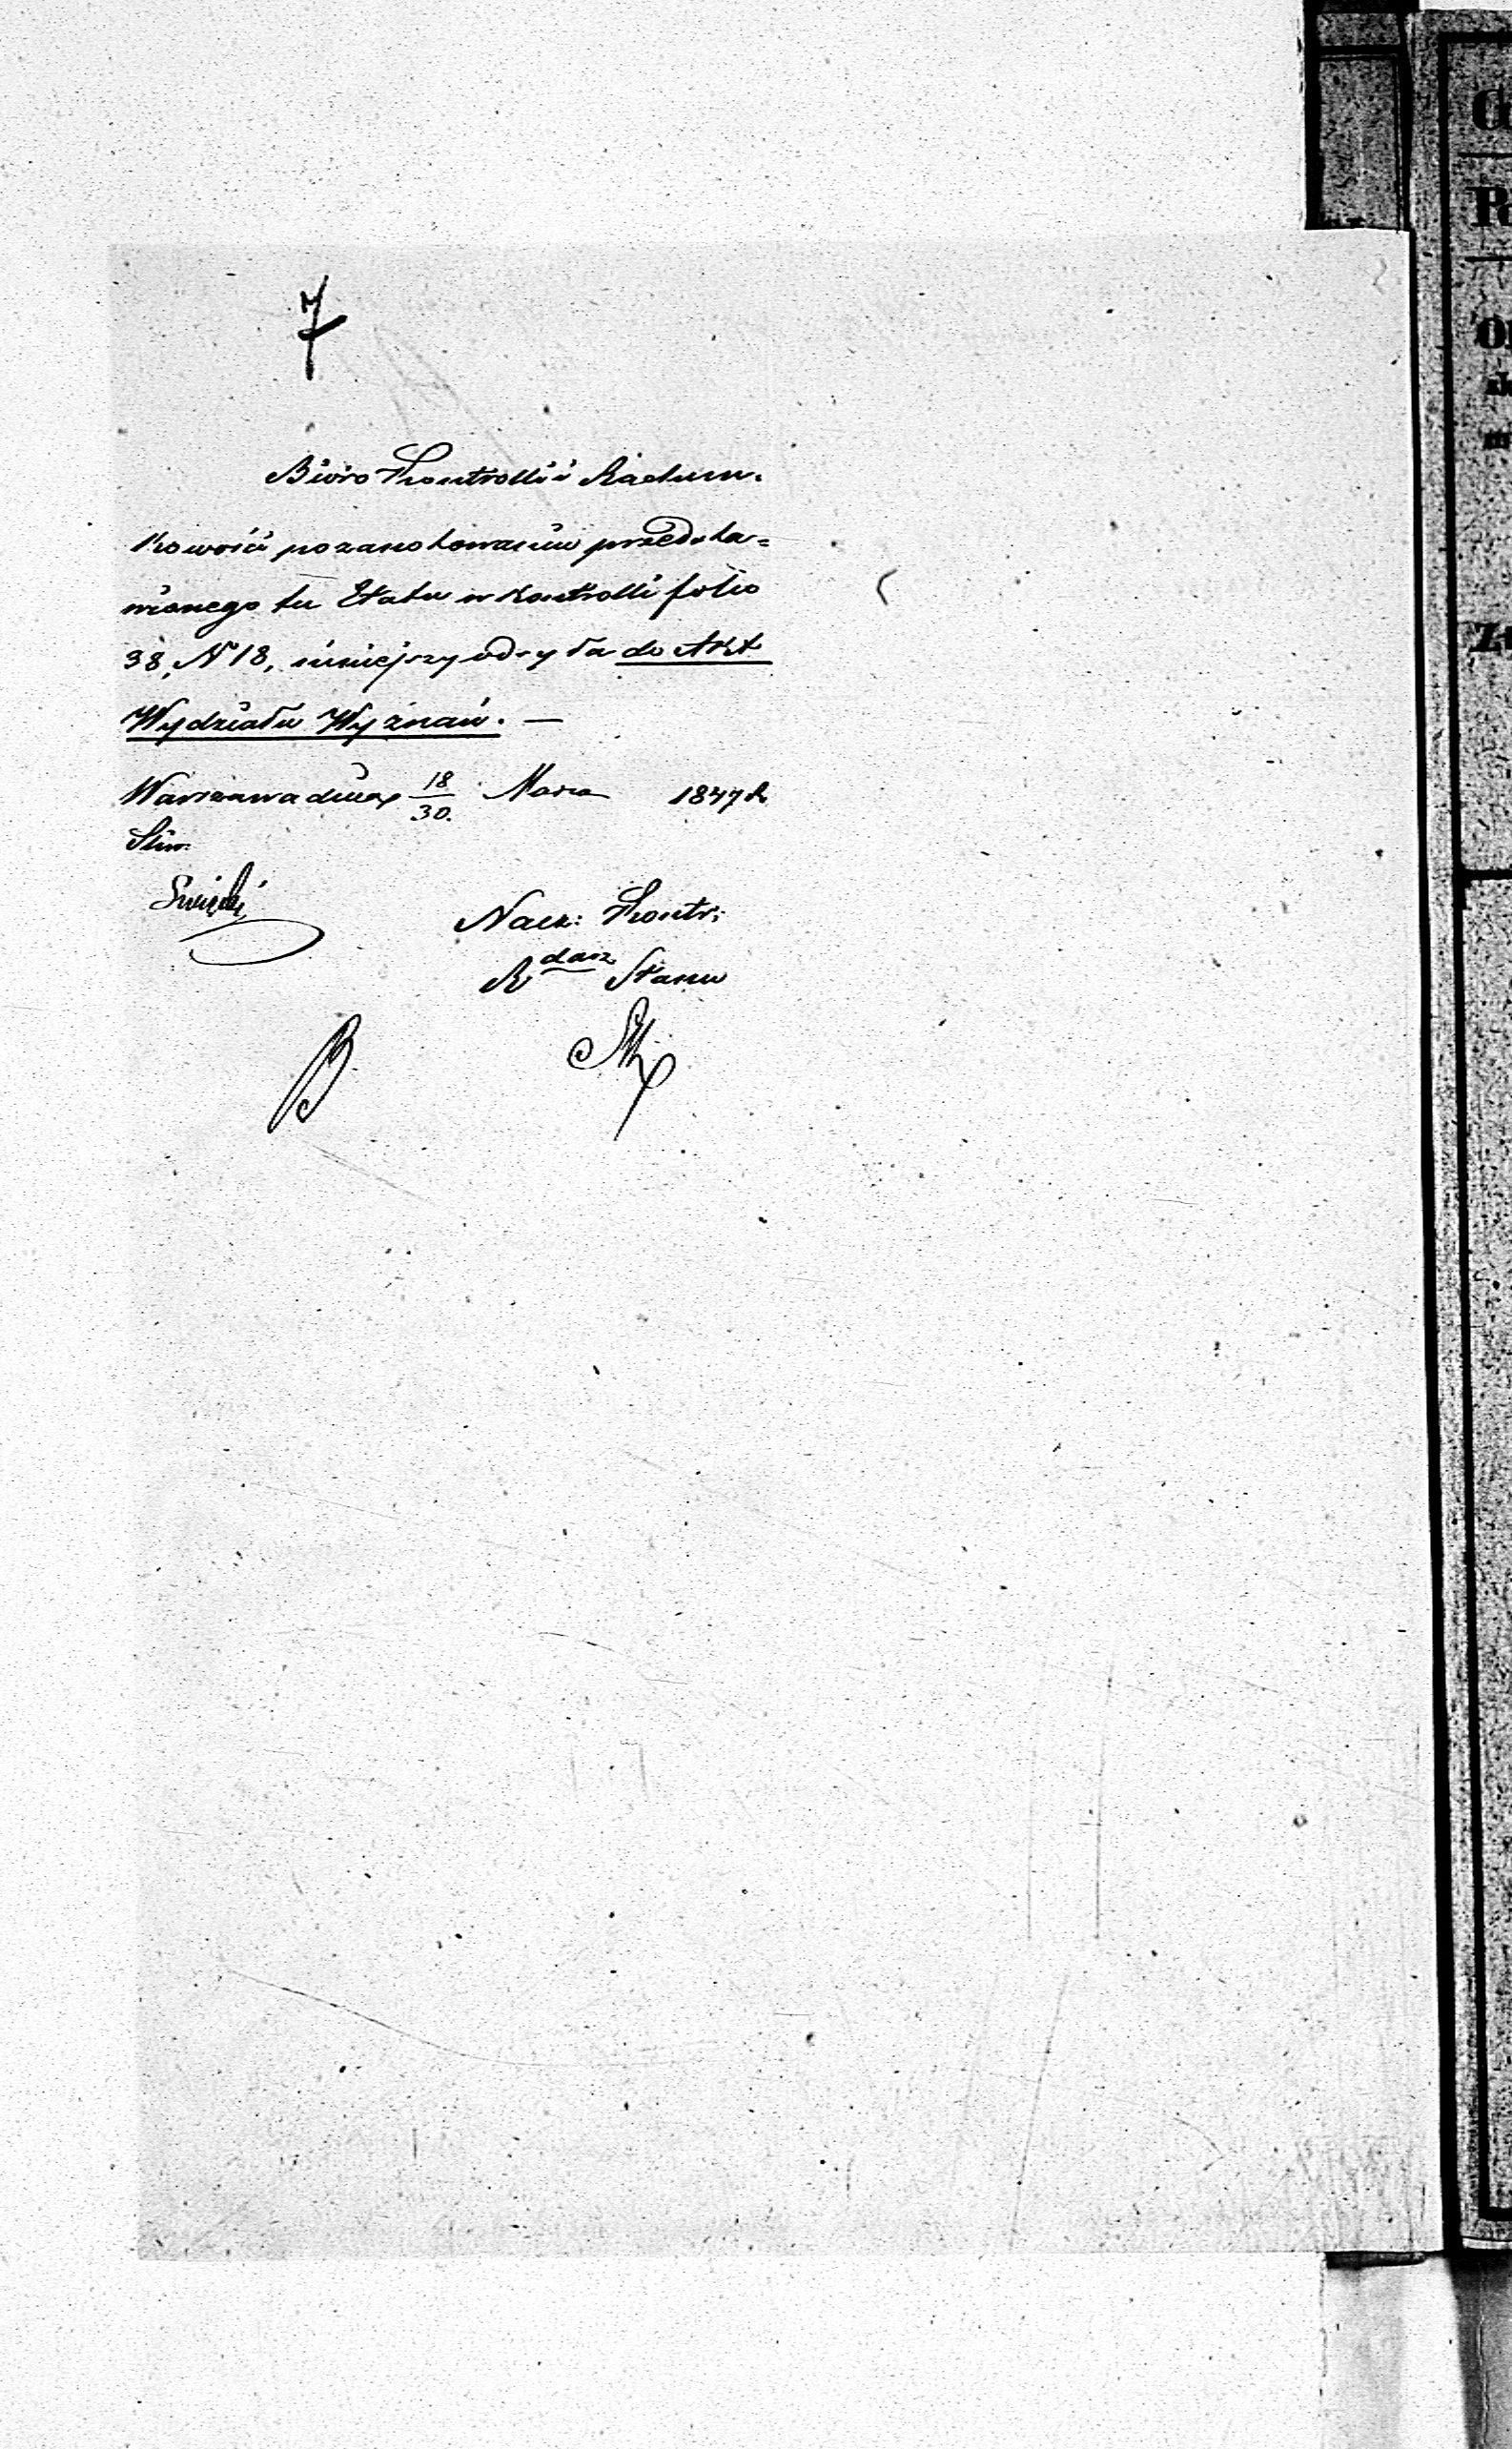 7
Biuro Kontrolli i Rachun.
kowości po zanotowaniu przedsta=
wionego tu Etatu w Kontrolli folio
38, N 18, niniejszy odsyła do Akt
Wydziału Wyznań. —
Warszawa dnia 18/30. Marca 1847 R
Nacz: Kontr:
R darz Stanu
B